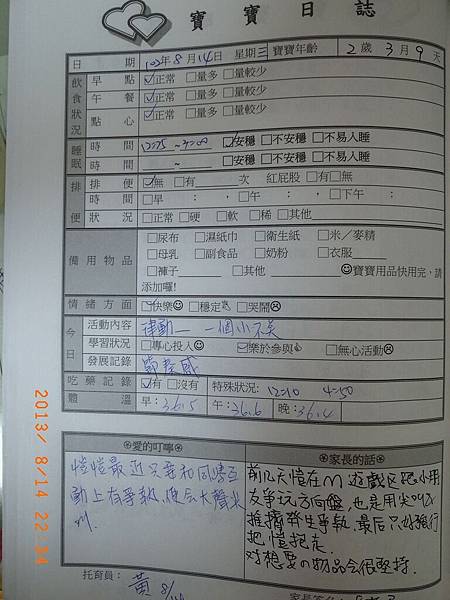 寶寶日誌
日期 102年8月14日 星期三 寶寶年齡 2歲3月9天
飲食狀況 早點 ☑正常 □量多 □量較少
午餐 ☑正常 □量多 □量較少
點心 ☑正常 □量多 □量較少
睡眠 時間 12:25 ~ 3:00 ☑安穩 □不安穩 □不易入睡
時間 ~ □安穩 □不安穩 □不易入睡
排便 排便 ☑無 □有 次 紅屁股 □有 □無
時間 □早 : , □午 : , □下午 :
狀況 □正常 □硬 □軟 □稀 □其他
備用物品 □尿布 □濕紙巾 □衛生紙 □米/麥精
□母乳 □副食品 □奶粉 □衣服
□褲子 □其他 ☺寶寶用品快用完,請
添加喔!
情緒方面 ☑快樂☺ □穩定 □哭鬧☹
今日 活動內容 律動—一個小不笑
學習狀況 □專心投入☺ ☑樂於參與 □無心活動☹
發展記錄 節奏感
吃藥記錄 ☑有 □沒有 特殊狀況: 12:10 4:50
體溫 早:36.5 午:36.6 晚:36.4
愛的叮嚀
愷愷最近只要和同儕互
動上有爭執,便會大聲尖
叫.
家長的話
前几天愷在M 遊戲區跟小朋
友爭玩方向盤,也是用尖叫及
推擠發生爭執.最后只好強行
把愷抱走.
对想要の物品会很堅持.
托育員: 黃 8/14
2013/ 8/14 22:34